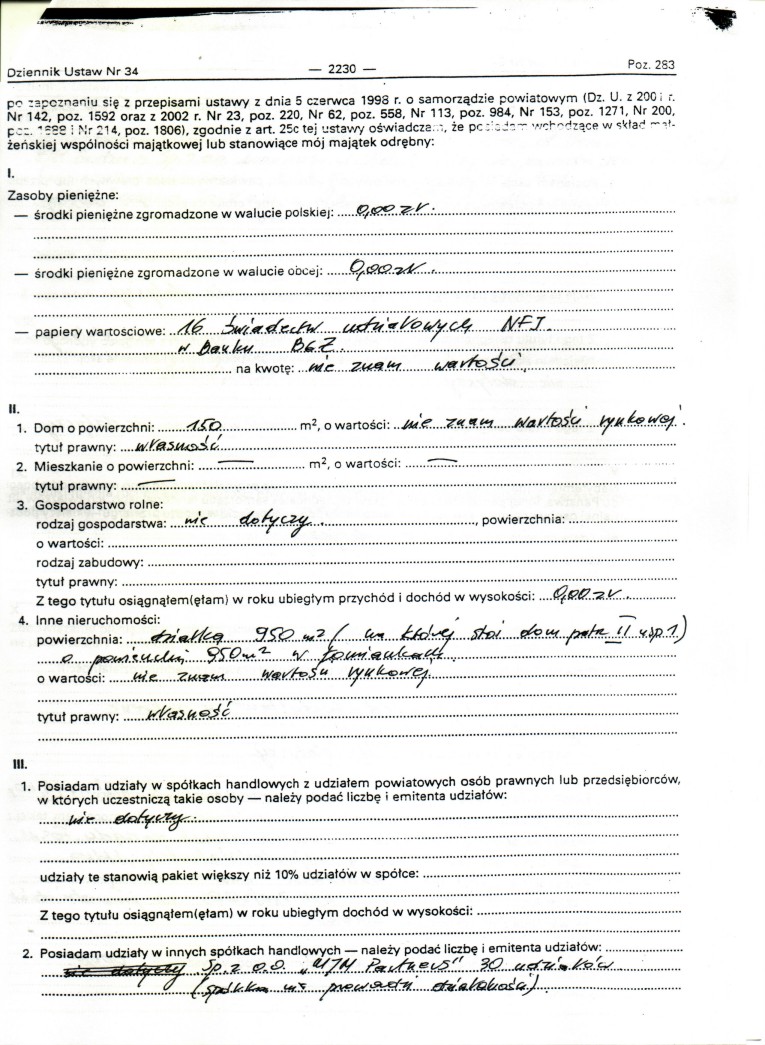 Dziennik Ustaw Nr 34 — 2230 — Poz. 283
po zapoznaniu się z przepisami ustawy z dnia 5 czerwca 1998 r. o samorządzie powiatowym (Dz. U. z 2001 r.
Nr 142, poz. 1592 oraz z 2002 r. Nr 23, poz. 220, Nr 62, poz. 558, Nr 113, poz. 984, Nr 153, poz. 1271, Nr 200,
poz. 1688 i Nr 214, poz. 1806), zgodnie z art. 25c tej ustawy oświadczam, że posiadam wchodzące w skład mał-
żeńskiej wspólności majątkowej lub stanowiące mój majątek odrębny:
I.
Zasoby pieniężne:
— środki pieniężne zgromadzone w walucie polskiej: 0,00 zł.
— środki pieniężne zgromadzone w walucie obcej: 0,00 zł.
— papiery wartościowe: 16 świadectw udziałowych NFI.
w Banku BGŻ.
na kwotę: nie znam wartości.
II.
1. Dom o powierzchni: 150 m², o wartości: nie znam wartości rynkowej.
tytuł prawny: własność
2. Mieszkanie o powierzchni: — m², o wartości: —
tytuł prawny: —
3. Gospodarstwo rolne:
rodzaj gospodarstwa: nie dotyczy., powierzchnia:
o wartości:
rodzaj zabudowy:
tytuł prawny:
Z tego tytułu osiągnąłem(ęłam) w roku ubiegłym przychód i dochód w wysokości: 0,00 zł.
4. Inne nieruchomości:
powierzchnia: działka 950 m² (na której stoi dom patrz II up. 1)
o powierzchni 950 m² w Łomiankach.
o wartości: nie znam wartości rynkowej
tytuł prawny: własność
III.
1. Posiadam udziały w spółkach handlowych z udziałem powiatowych osób prawnych lub przedsiębiorców,
w których uczestniczą takie osoby — należy podać liczbę i emitenta udziałów:
nie dotyczy.
udziały te stanowią pakiet większy niż 10% udziałów w spółce:
Z tego tytułu osiągnąłem(ęłam) w roku ubiegłym dochód w wysokości:
2. Posiadam udziały w innych spółkach handlowych — należy podać liczbę i emitenta udziałów:
nie dotyczy Sp. z o.o. Partners" 30 udziałów
(spółka nie prowadzi działalności)